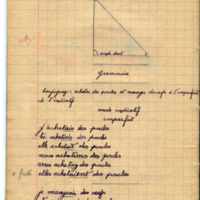 angle droit
Grammaire
Conjuguez : acheter des poules et manger des œufs à l'imparfait
de l'indicatif
mode indicatif
imparfait
j'achetais des poules
tu achetais des poules
elle achetait des poules
nous achetions des poules
vous achetiez des poules
elles achetaient des poules
je mangeais des œufs